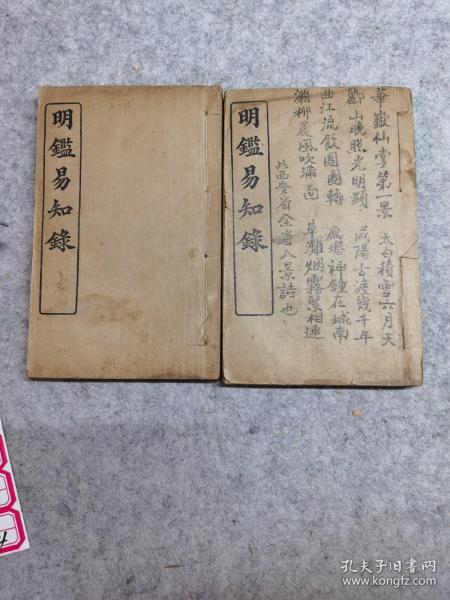 明鑑易知錄
明鑑易知錄
華嶽仙掌第景 太白積雪六月天
驪山晚照光明顯 咸陽古渡幾千年
曲江流飲團團轉 鴈塔神鐘在城南
灞柳晨風吹滿面 草灘烟霧緊相連
此西安省全省八景詩也
孔夫子旧书网
www.kongfz.com